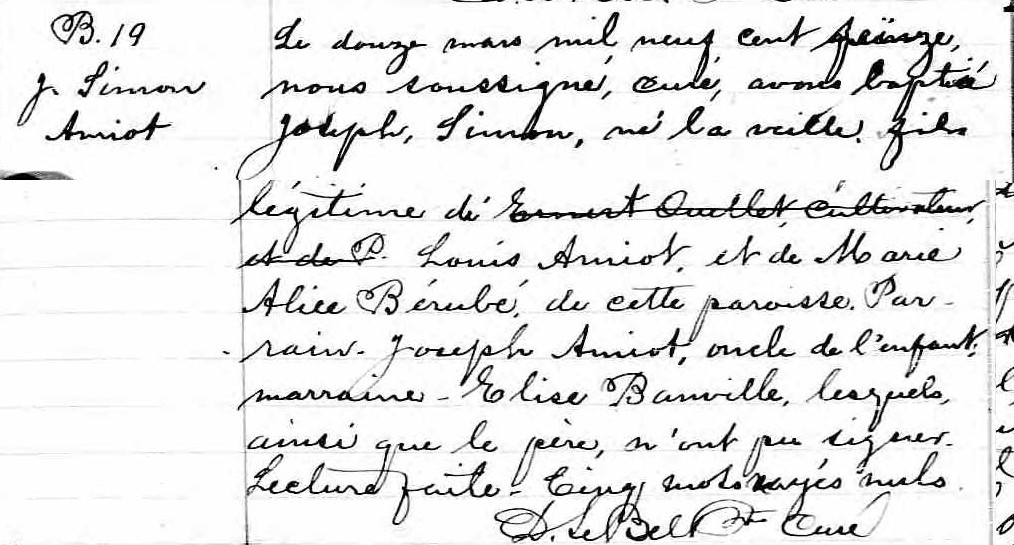 B. 19
J. Simon
Amiot
Le douze mars mil neuf cent quinze,
nous soussigné, curé, avons baptisé
Joseph, Simon, né la veille, fils
légitime de Ernest Ouellet, cultivateur,
et de P. Louis Amiot, et de Marie
Alice Bérubé, de cette paroisse. Par-
rain - Joseph Amiot, oncle de l'enfant;
marraine - Elise Banville, lesquels,
ainsi que le père, n'ont pu signer.
Lecture faite - Cinq mots rayés nuls.
D. Le Bel Ptre Curé